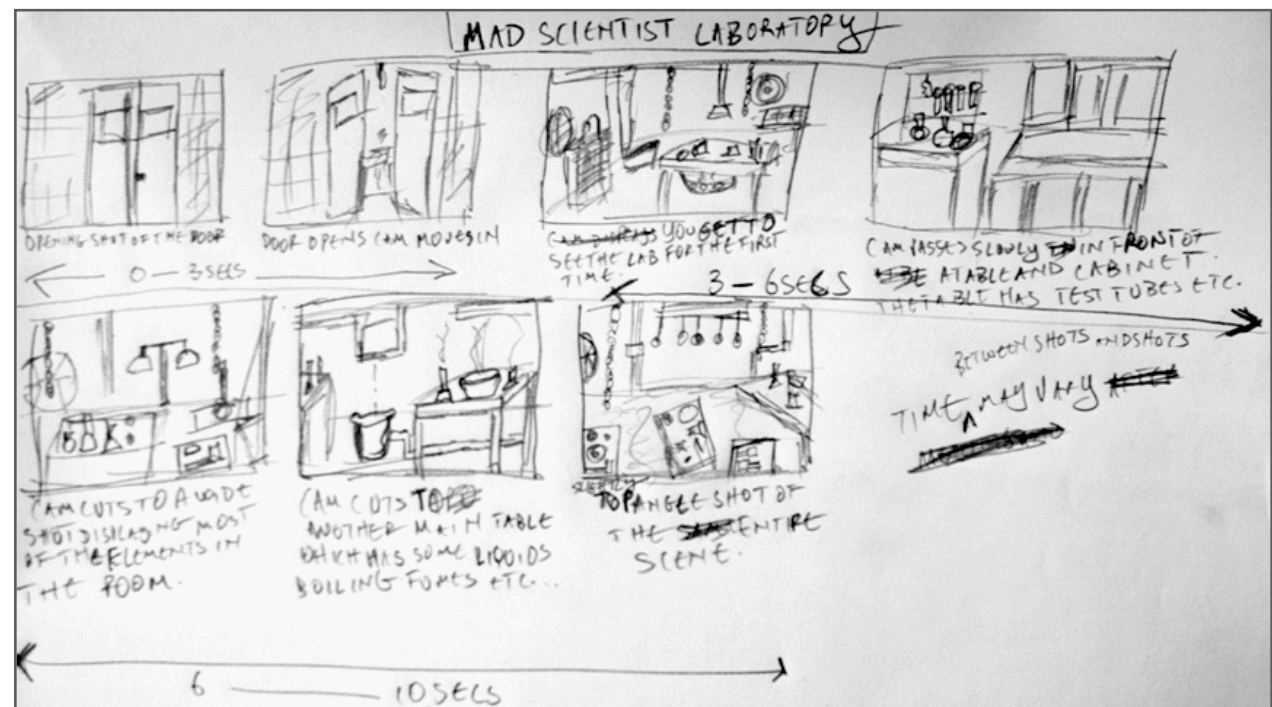 MAD SCIENTIST LABORATORY
OPENING SHOT OF THE DOOR
DOOR OPENS CAM MOVES IN
0 — 3SECS
CAM DISPLAYS YOU GET TO
SEE THE LAB FOR THE FIRST
TIME.
CAM PASSES SLOWLY IN FRONT OF
A TABLE AND CABINET.
THE TABLE HAS TEST TUBES ETC.
3 — 6SECS
CAM CUTS TO A WIDE
SHOT DISPLAING MOST
OF THE ELEMENTS IN
THE ROOM.
CAM CUTS TO
ANOTHER MAIN TABLE
WHICH HAS SOME LIQUIDS
BOILING FUMES ETC...
TOP ANGLE SHOT OF
THE ENTIRE
SCENE.
BETWEEN SHOTS AND SHOTS
TIME ^ MAY VARY
6 — 10SECS